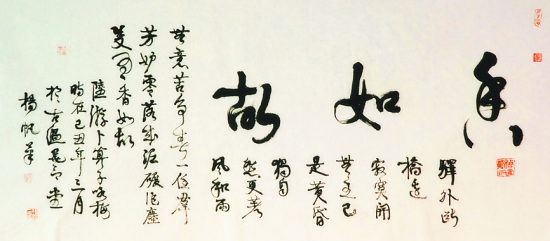 香如故
驛外断
橋邊
寂寞開
無主已
是黄昏
獨自
愁更著
風和雨
無意苦争春一任群
芳妒零落成泥碾作塵
只有香如故
陸游卜算子詠梅
時在己丑年三月
於古
楊帆筆